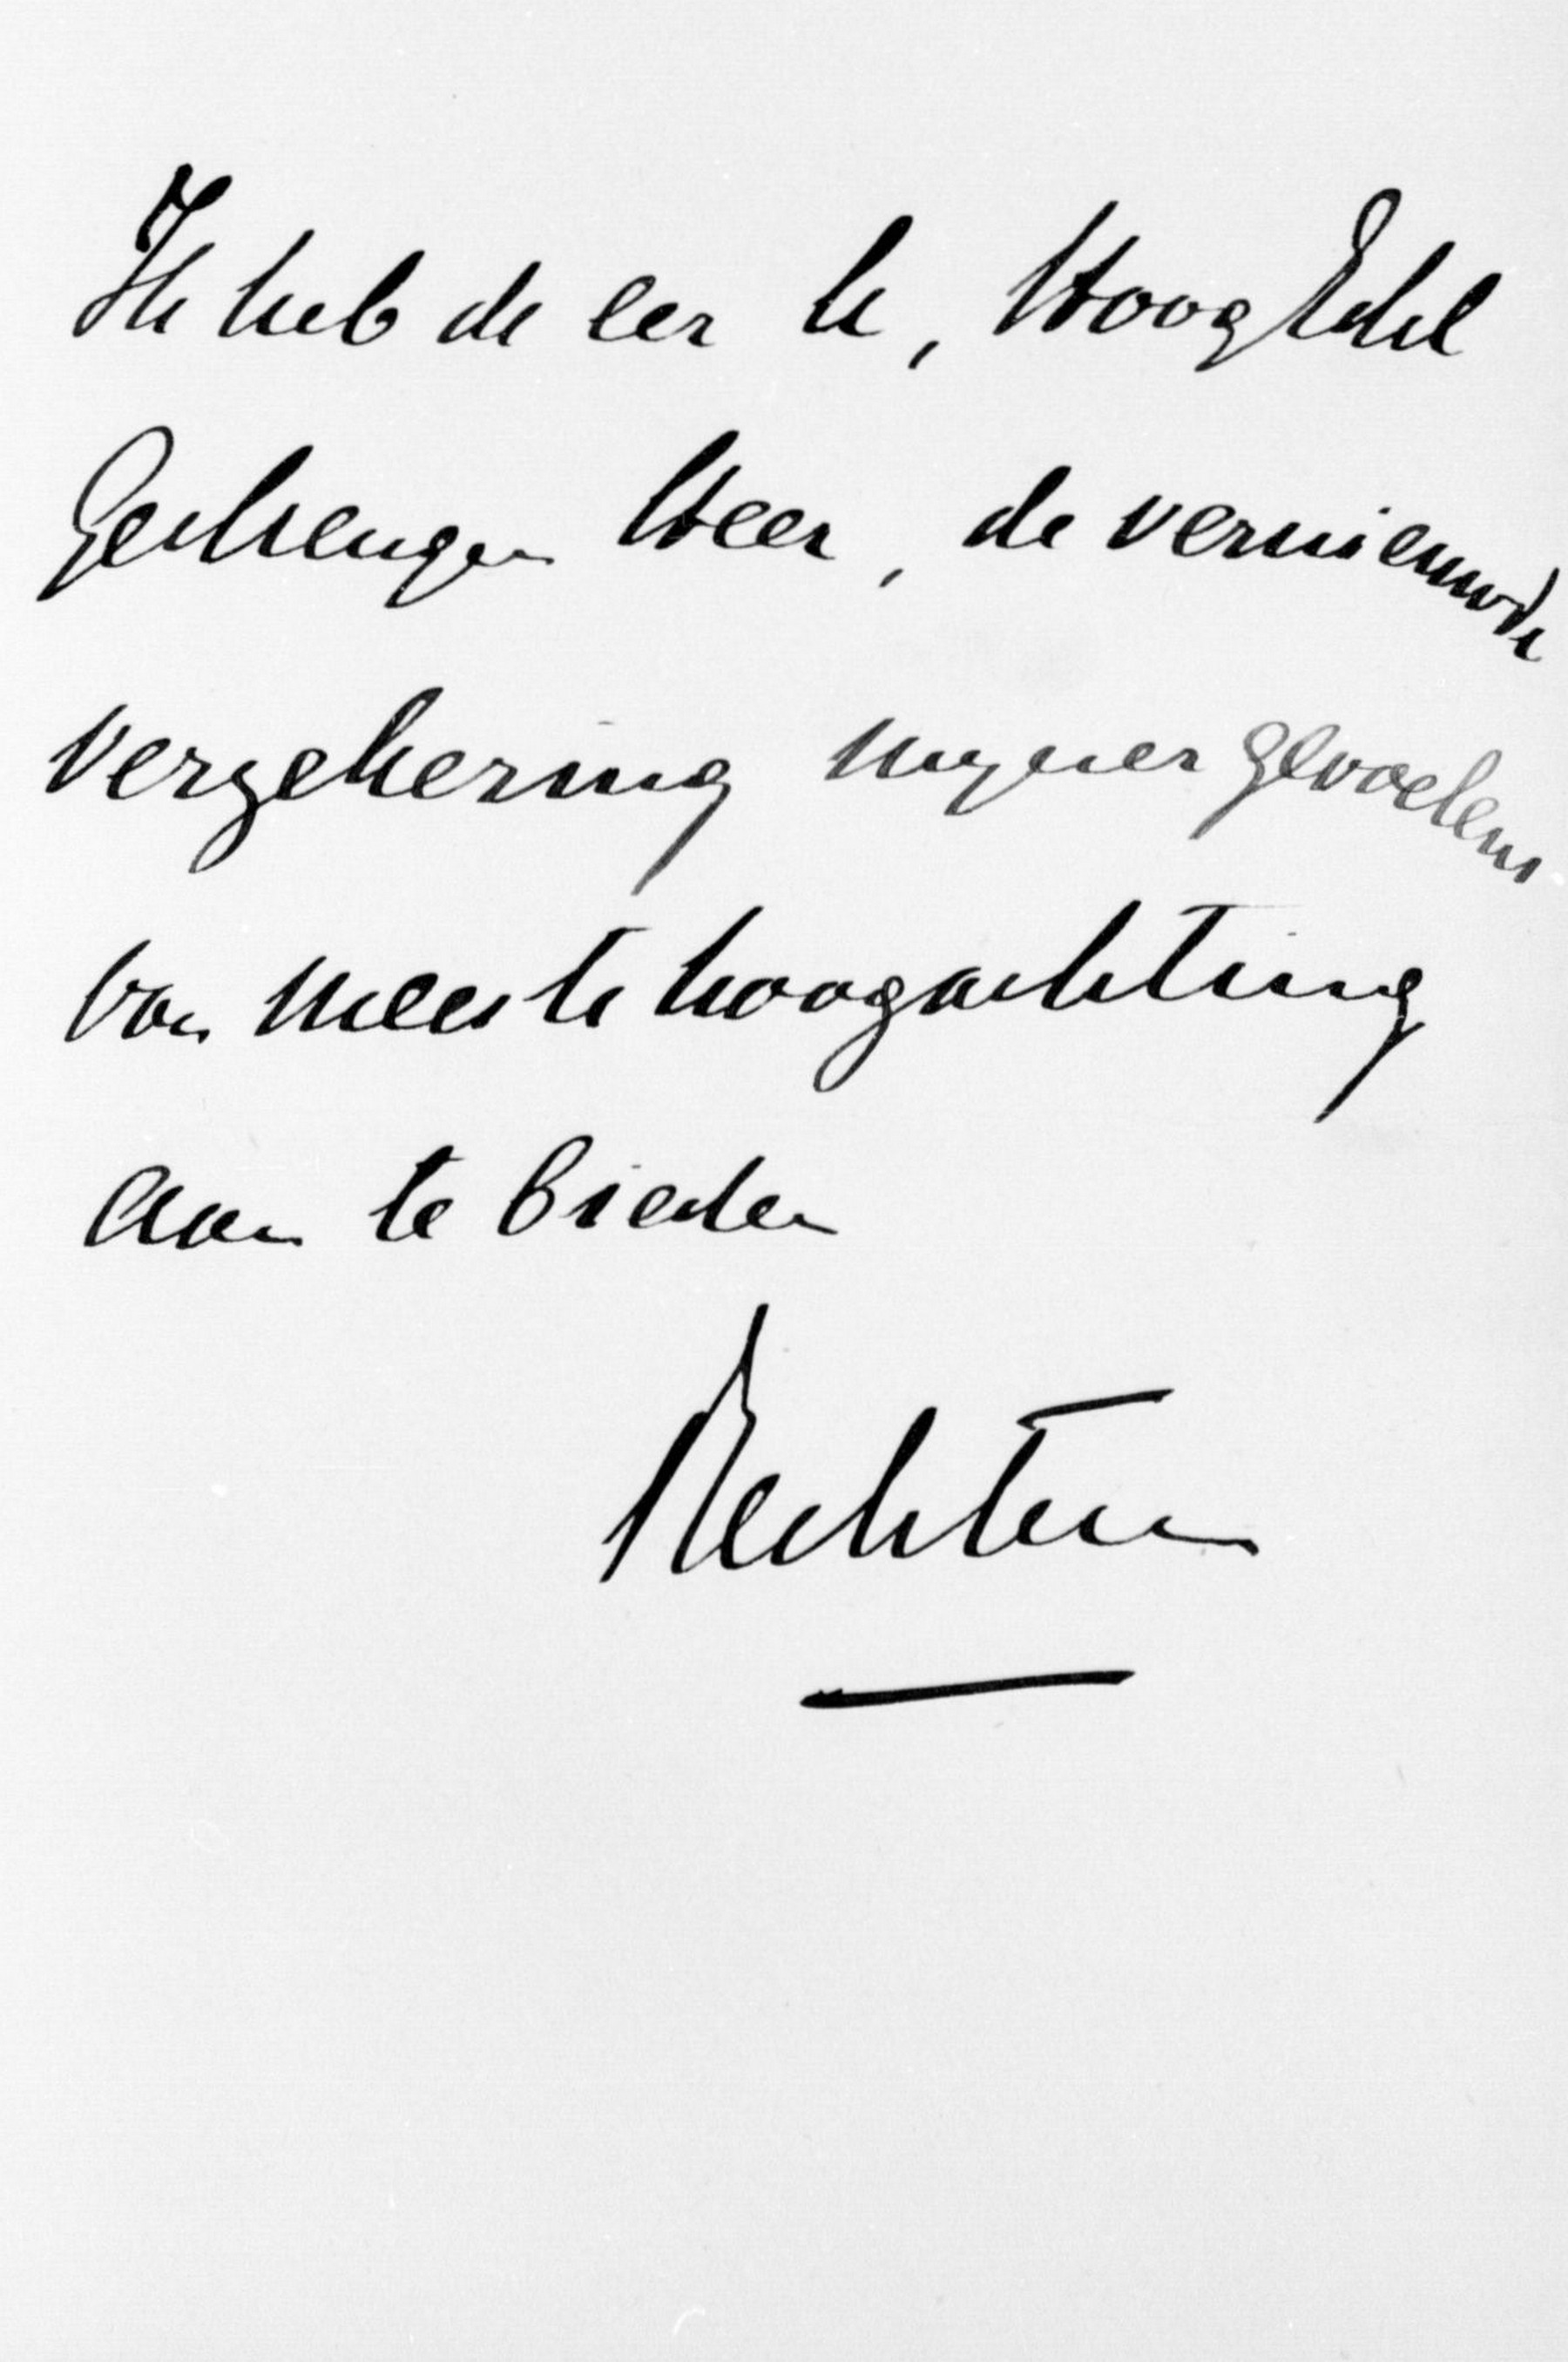 Ik heb de eer U, HoogEdel
Gestrenge Heer, de vernieuwde
verzekering mijner gevoelens
van meeste hoogachting
aan te bieden
Rechteren